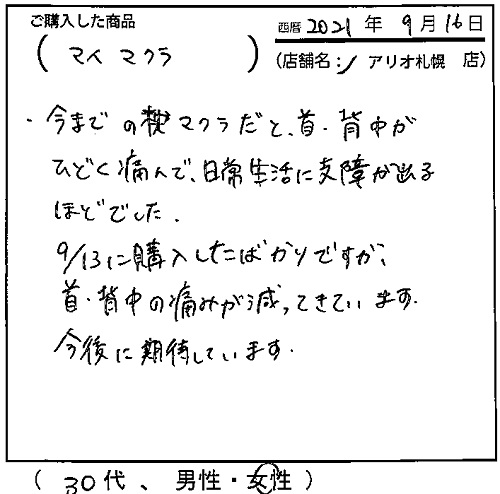 ご購入した商品
西暦 2021 年 9 月 16 日
( マイ マクラ )
(店舗名: アリオ札幌 店)
・今までのマクラだと、首・背中が
ひどく痛んで、日常生活に支障が出る
ほどでした。
9/13に購入したばかりですが、
首・背中の痛みが減ってきています。
今後に期待しています。
( 30代 、 男性・女性 )